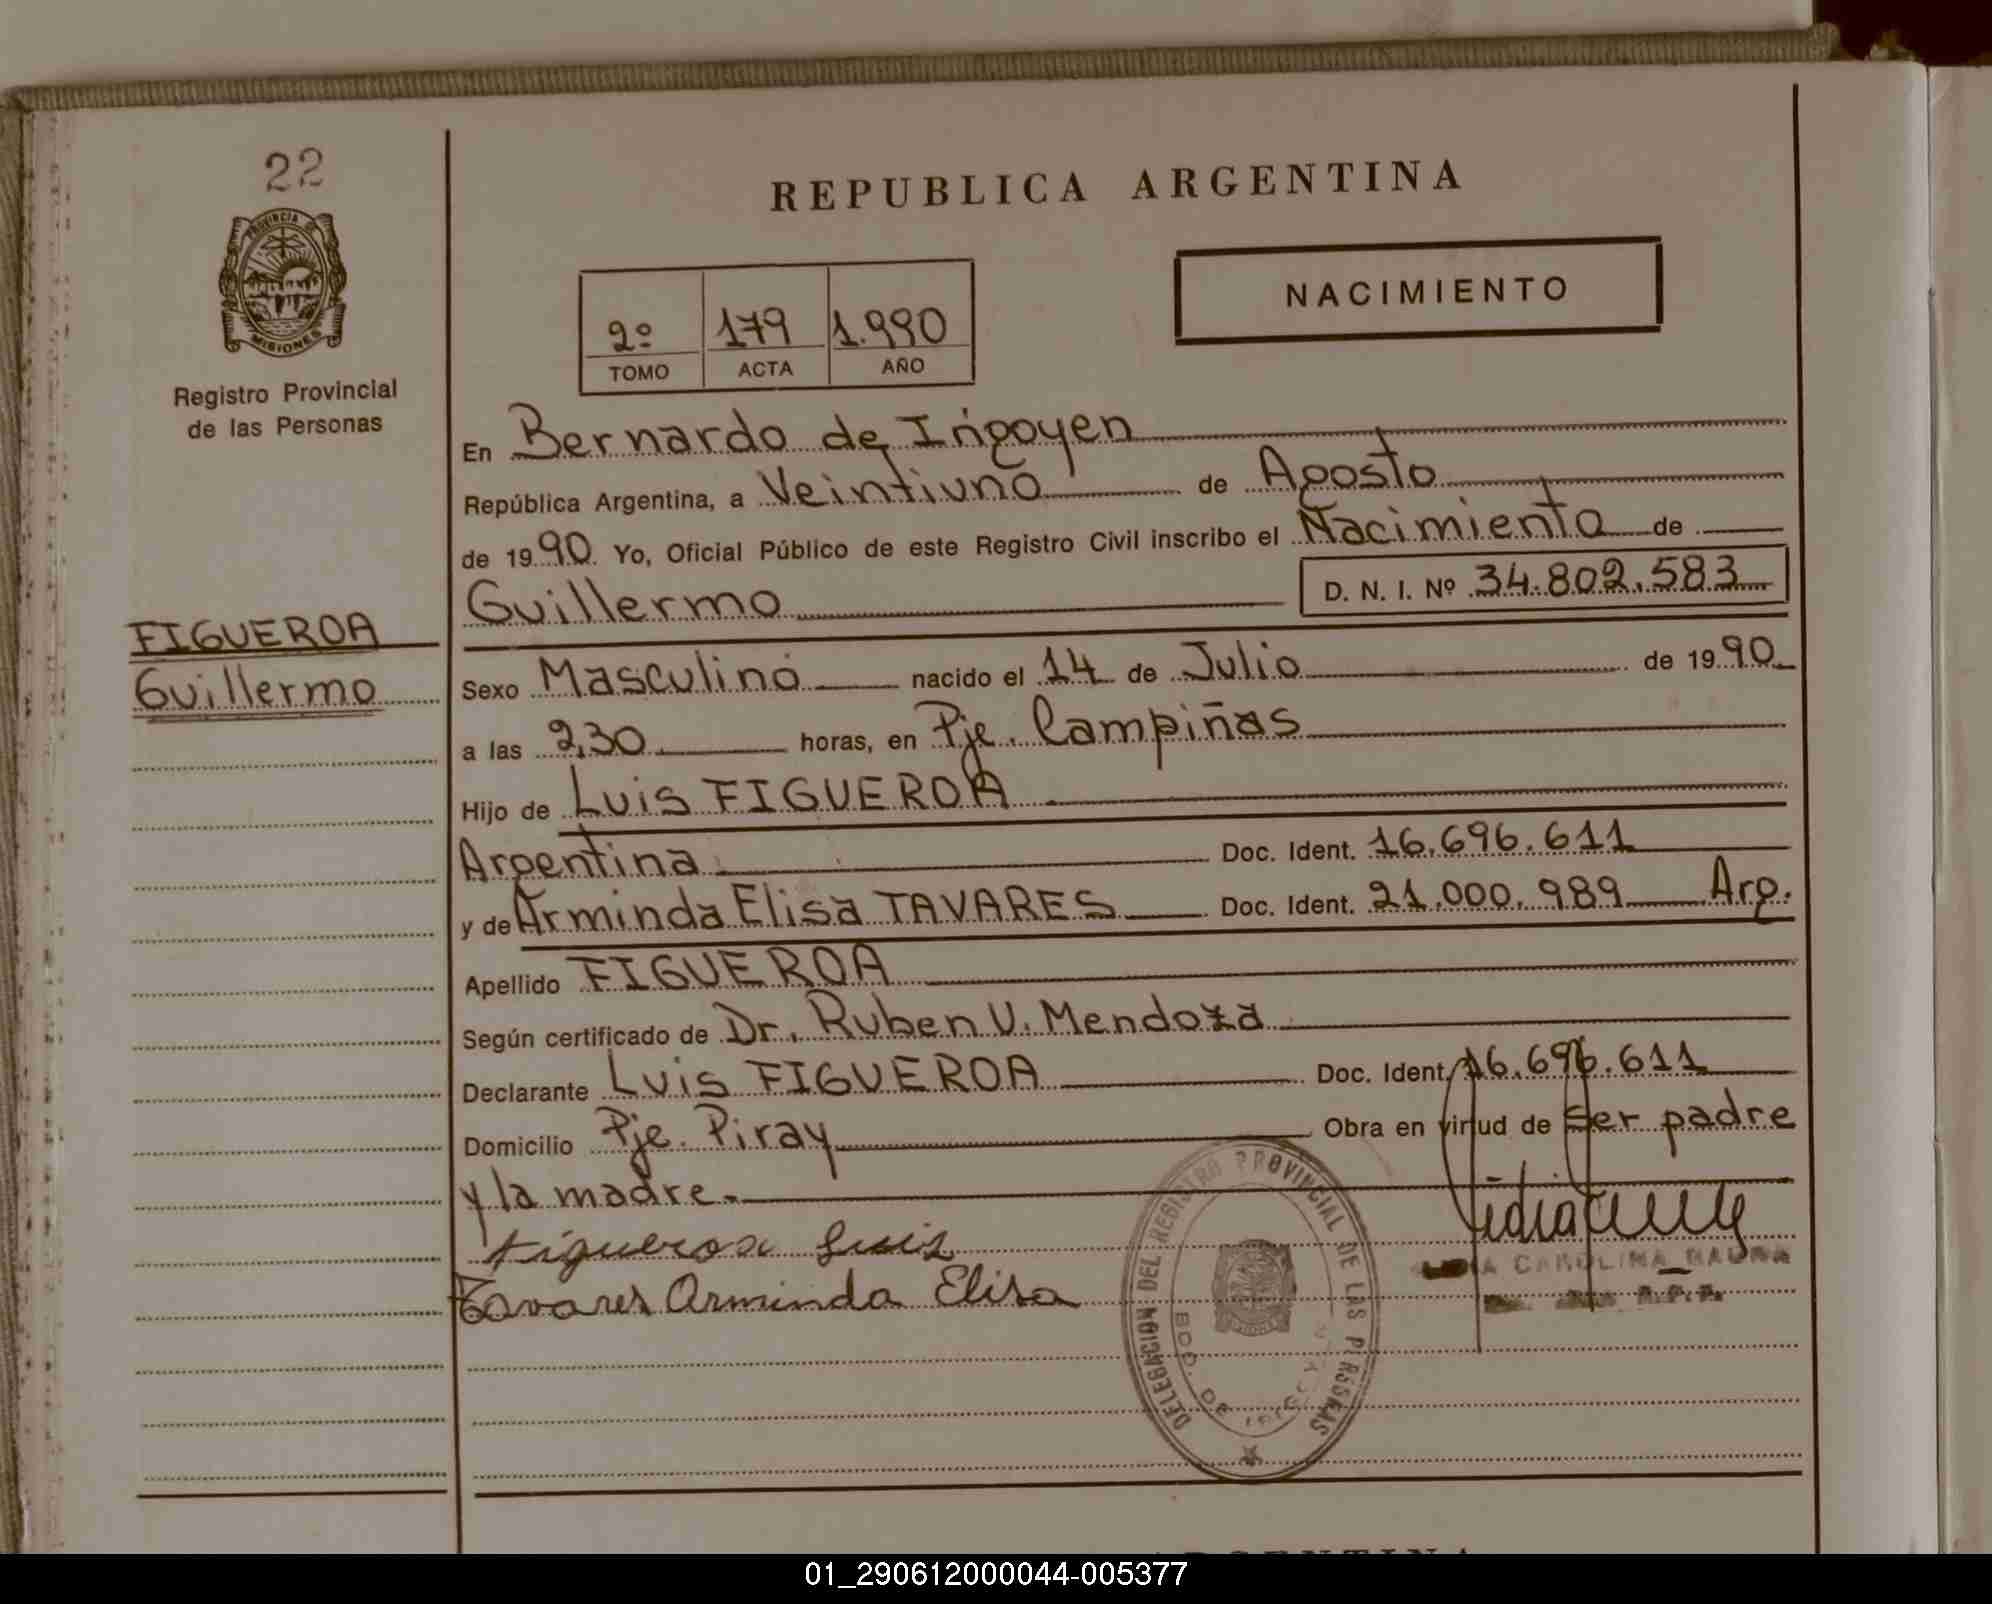 22
PROVINCIA DE
MISIONES
Registro Provincial
de las Personas
FIGUEROA
Guillermo
REPUBLICA ARGENTINA
NACIMIENTO
2º 179 1.990
TOMO ACTA AÑO
En Bernardo de Irigoyen
República Argentina, a Veintiuno de Agosto
de 1990 Yo, Oficial Público de este Registro Civil inscribo el Nacimiento de
Guillermo D. N. I. Nº 34.802.583
Sexo Masculino nacido el 14 de Julio de 1990
a las 2,30 horas, en Pje. Campiñas
Hijo de Luis FIGUEROA
Argentina Doc. Ident. 16.696.611
y de Arminda Elisa TAVARES Doc. Ident. 21.000.989 Arg.
Apellido FIGUEROA
Según certificado de Dr. Ruben V. Mendoza
Declarante Luis FIGUEROA Doc. Ident. 16.696.611
Domicilio Pje. Piray Obra en virtud de Ser padre
y la madre.
Figueroa Luis
Tavares Arminda Elisa
DELEGACION DEL REGISTRO PROVINCIAL DE LAS PERSONAS
BDO. DE IRIGOYEN
CAROLINA
R.P.P.
ARGENTINA
01_290612000044-005377